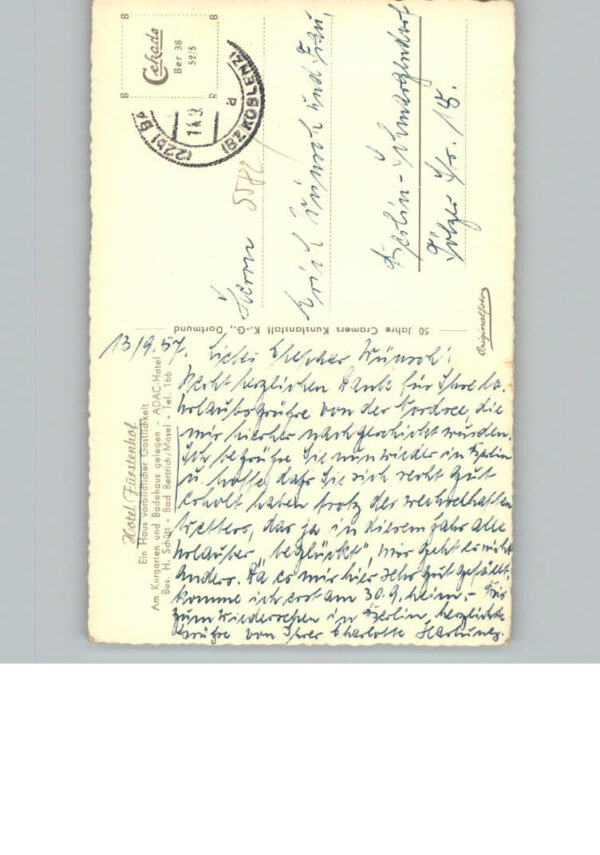 Hotel Fürstenhof
Ein Haus vorbildlicher Gastlichkeit
Am Kurgarten und Badehaus gelegen - ADAC-Hotel
Bes. H. Schütt - Bad Bertrich/Mosel - Tel. 166
13/9.57. Liebes Ehepaar Wünsch!
Recht herzlichen Dank für Ihre lb.
Urlaubsgrüße von der Nordsee, die
mir hierher nachgeschickt wurden.
Ich begrüße Sie nun wieder in Berlin
u. hoffe, daß Sie sich recht gut
erholt haben trotz des wechselhaften
Wetters, das ja in diesem Jahr alle
Urlauber „beglückt", mir geht es nicht
anders. Da es mir hier sehr gut gefällt,
komme ich erst am 30.9. heim. - Bis
zum Wiedersehen in Berlin, herzlichste
Grüße von Ihrer Charlotte
50 Jahre Cramers Kunstanstalt K.-G., Dortmund
Originalfoto
B B
Cekade
Ber 38
52/5
B R
(22b) B
14.9.
(Bz KOBLENZ)
a
5582
Herrn
Erich Wünsch und Frau,
Berlin-Schmargendorf
Tölzer Str. 15.